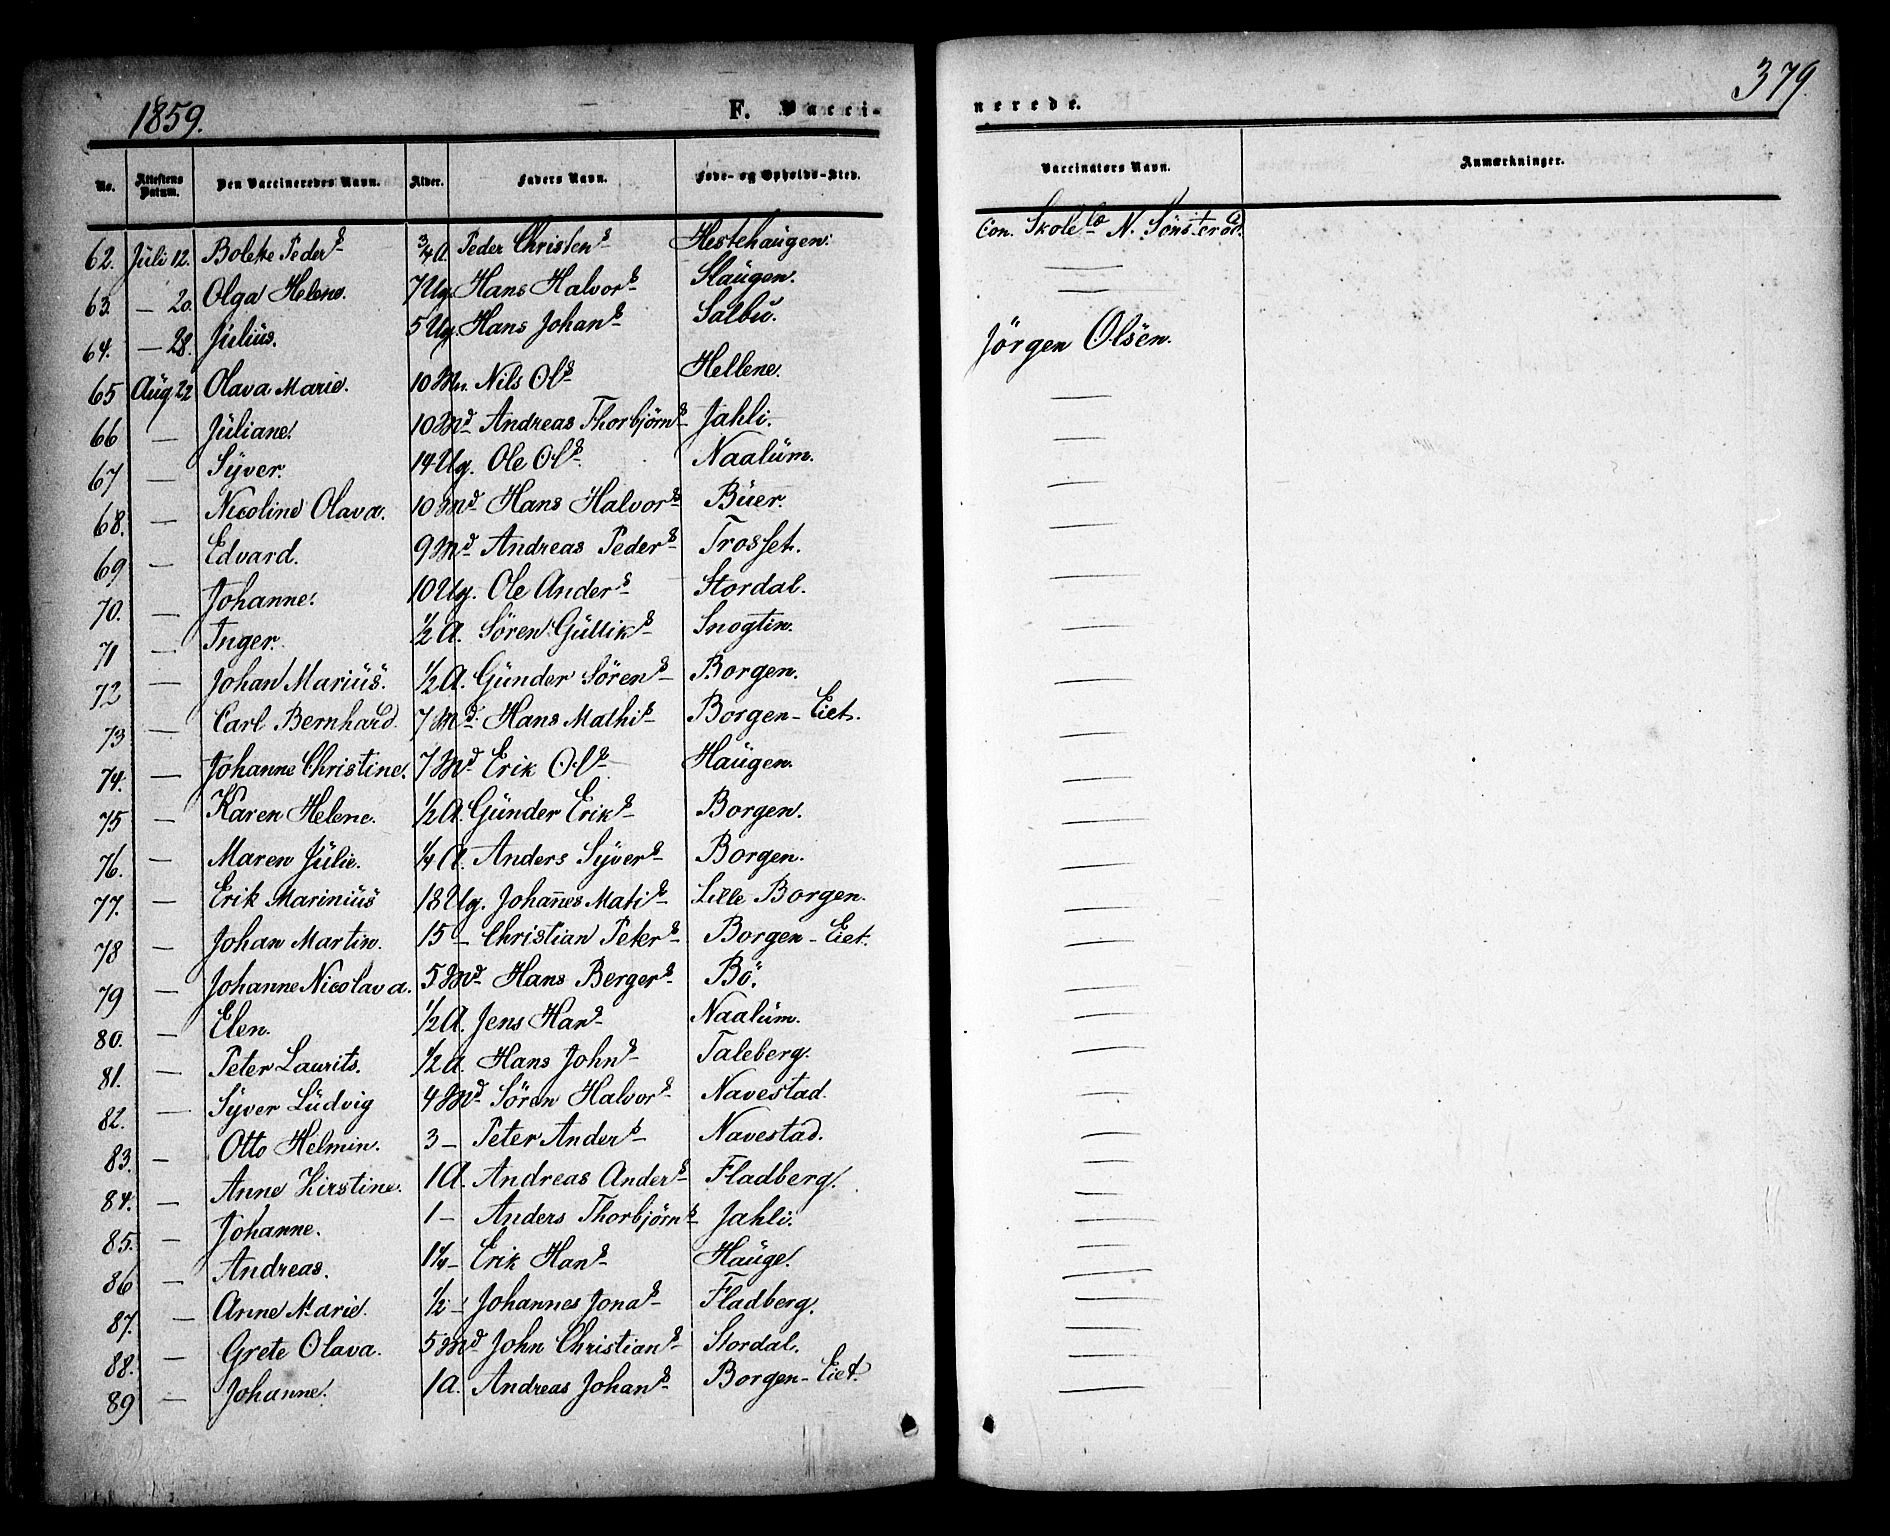 1859.
F. Vacci-
nerede.
379.
No. Attestens Datum. Den Vaccineredes Navn. Alder. Faders Navn. Føde- og Opholds-Sted. Vaccinators Navn. Anmærkninger.
62. Juli 12. Bolette Peders 3/4 A. Peder Christens Hestehaugen. Con. Skole N. Sönsteröd.
63. — 20. Olga Helene. 7 Ug. Hans Halvors Slaugen. —
64. — 28. Julius. 5 Ug. Hans Johans Salbu. Jörgen Olsen.
65 Aug 22 Olava Marie. 10 Mn. Nils Ols Hellene. —
66 — Juliane. 10 Md Andreas Thorbjörns Jahli. —
67 — Syver. 14 Ug. Ole Ols Naalum. —
68. — Nicoline Olava. 10 Md Hans Halvors Buer. —
69 — Edvard. 9 Md Andreas Peders Trosset. —
70. — Johanne. 10 Ug. Ole Anders Stordal. —
71 — Inger. 1/2 A. Sören Gulliks Snogtin. —
72 — Johan Marius. 1/2 A. Gunder Sörens Borgen. —
73 — Carl Bernhard. 7 Md. Hans Mathis Borgen-Eiet. —
74. — Johanne Christine. 7 Md Erik Ols Haugen. —
75 — Karen Helene. 1/2 A. Gunder Eriks Borgen. —
76. — Maren Julie. 1/4 A. Anders Syvers Borgen. —
77. — Erik Marinius 18 Ug. Johannes Matis Lille Borgen. —
78 — Johan Martin. 15 — Christian Peters Borgen-Eiet. —
79 — Johanne Nicolava. 5 Md Hans Bergers Bö. —
80. — Elen. 1/2 A. Jens Hans Naalum. —
81. — Peter Laurits. 1/2 A Hans Johns Taleberg. —
82. — Syver Ludvig 4 Md Sören Halvors Navestad. —
83. — Otto Helmin. 3 — Peter Anders Navestad. —
84. — Anne Kirstine. 1 A. Andreas Anders Fladberg. —
85. — Johanne. 1 — Anders Thorbjörns Jahli. —
86 — Andreas. 1 1/4 — Erik Hans Hauge. —
87. — Anne Marie. 1/2 — Johannes Jonas Fladberg. —
88. — Grete Olava. 5 Md John Christians Stordal. —
89 — Johanne. 1 A. Andreas Johans Borgen-Eiet —